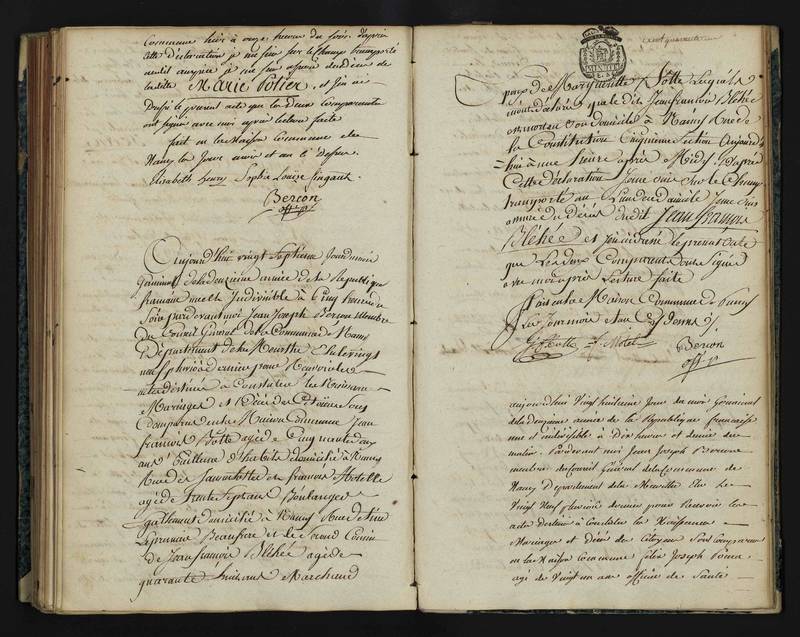 Commune hier à onze heures du soir. d'après
cette déclaration je me suis sur le champ transporté
audit auspice je me suis assuré du décès de
ladite Marie Potier, et j'en ai
dressé le present acte que les deux comparents
ont signé avec moi après lecture faite
fait en la Maison Commune de
Nancy les jours mois et an ci dessus.
Elisabeth henry Sophie Louise
Berson
off. p.
Aujourd'huit vingt Septieme Jour du mois
Germinal de la deuxieme année de la Republique
francaise une et Indivisible à Cinq heures du
Soir pardevant moi Jean Joseph Berson Membre
du Conseil General de la Commune de Nancy
Département de la Meurthe Elu le vingt
neuf pluviose dernier pour Recevoir les
actes destinés à Constater les Naissances
Mariages et Décès des Citoiens Sont
Comparus en la Maison Commune Jean
francois Botte agé de Cinquante deux
ans Tailleur d'habits domicilié à Nancy
Rue de et francois Motelle
agé de trente Sept ans Boulanger
également domicilié à Nancy Rue
et le Second Cousin
de Jean francois Bléhée agé de
quarante huit ans Marchand
cent quarante
Epoux de Marguerite Botte Lesquels
m'ont déclaré que le dit Jean francois Bléhée
est mort en Son domicile à Nancy Rue de
la Constitution Cinquieme Section Aujourd'
hui à une heure après Midy. D'après
Cette déclaration Je me suis Sur le Champ
transporté au Lieu du domicile Je me suis
assuré du Décès dudit Jean francois
Bléhée et J'en ai dressé le present acte
que Les deux Comparents ont Signé
avec moi après Lecture faite
Fait en la Maison Commune de Nancy
Les Jour mois et an Cy dessus
Botte f. Motel
Berson
off. p.
aujourd'hui Vingt huitieme jour du mois Germinal
de la deuxieme année de la Republique francaise
une et indivisible à Dix heures et demie du
matin. Pardevant moi Jean Joseph Berson
membre du Conseil Général de la Commune de
Nancy Departement de la Meurthe Elu le
Vingt Neuf pluviose dernier pour Recevoir les
actes destinés à Constater les Naissances
Mariages et Décès des Citoyens Sont Comparus
en la Maison Commune felix Joseph
agé de Vingt un ans officier de Santé